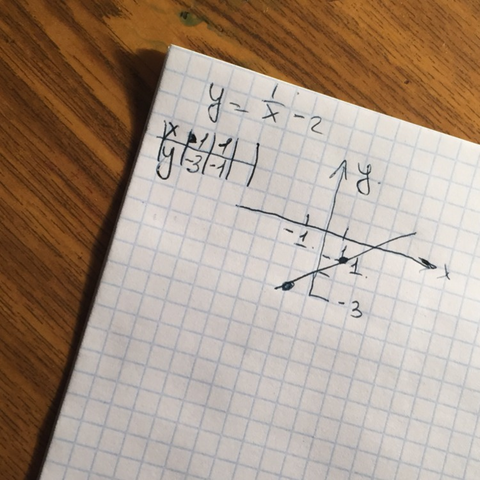 y = 1/x - 2
x | -1 | 1 |
y | -3 | -1 |
y
-1
1
x
-3